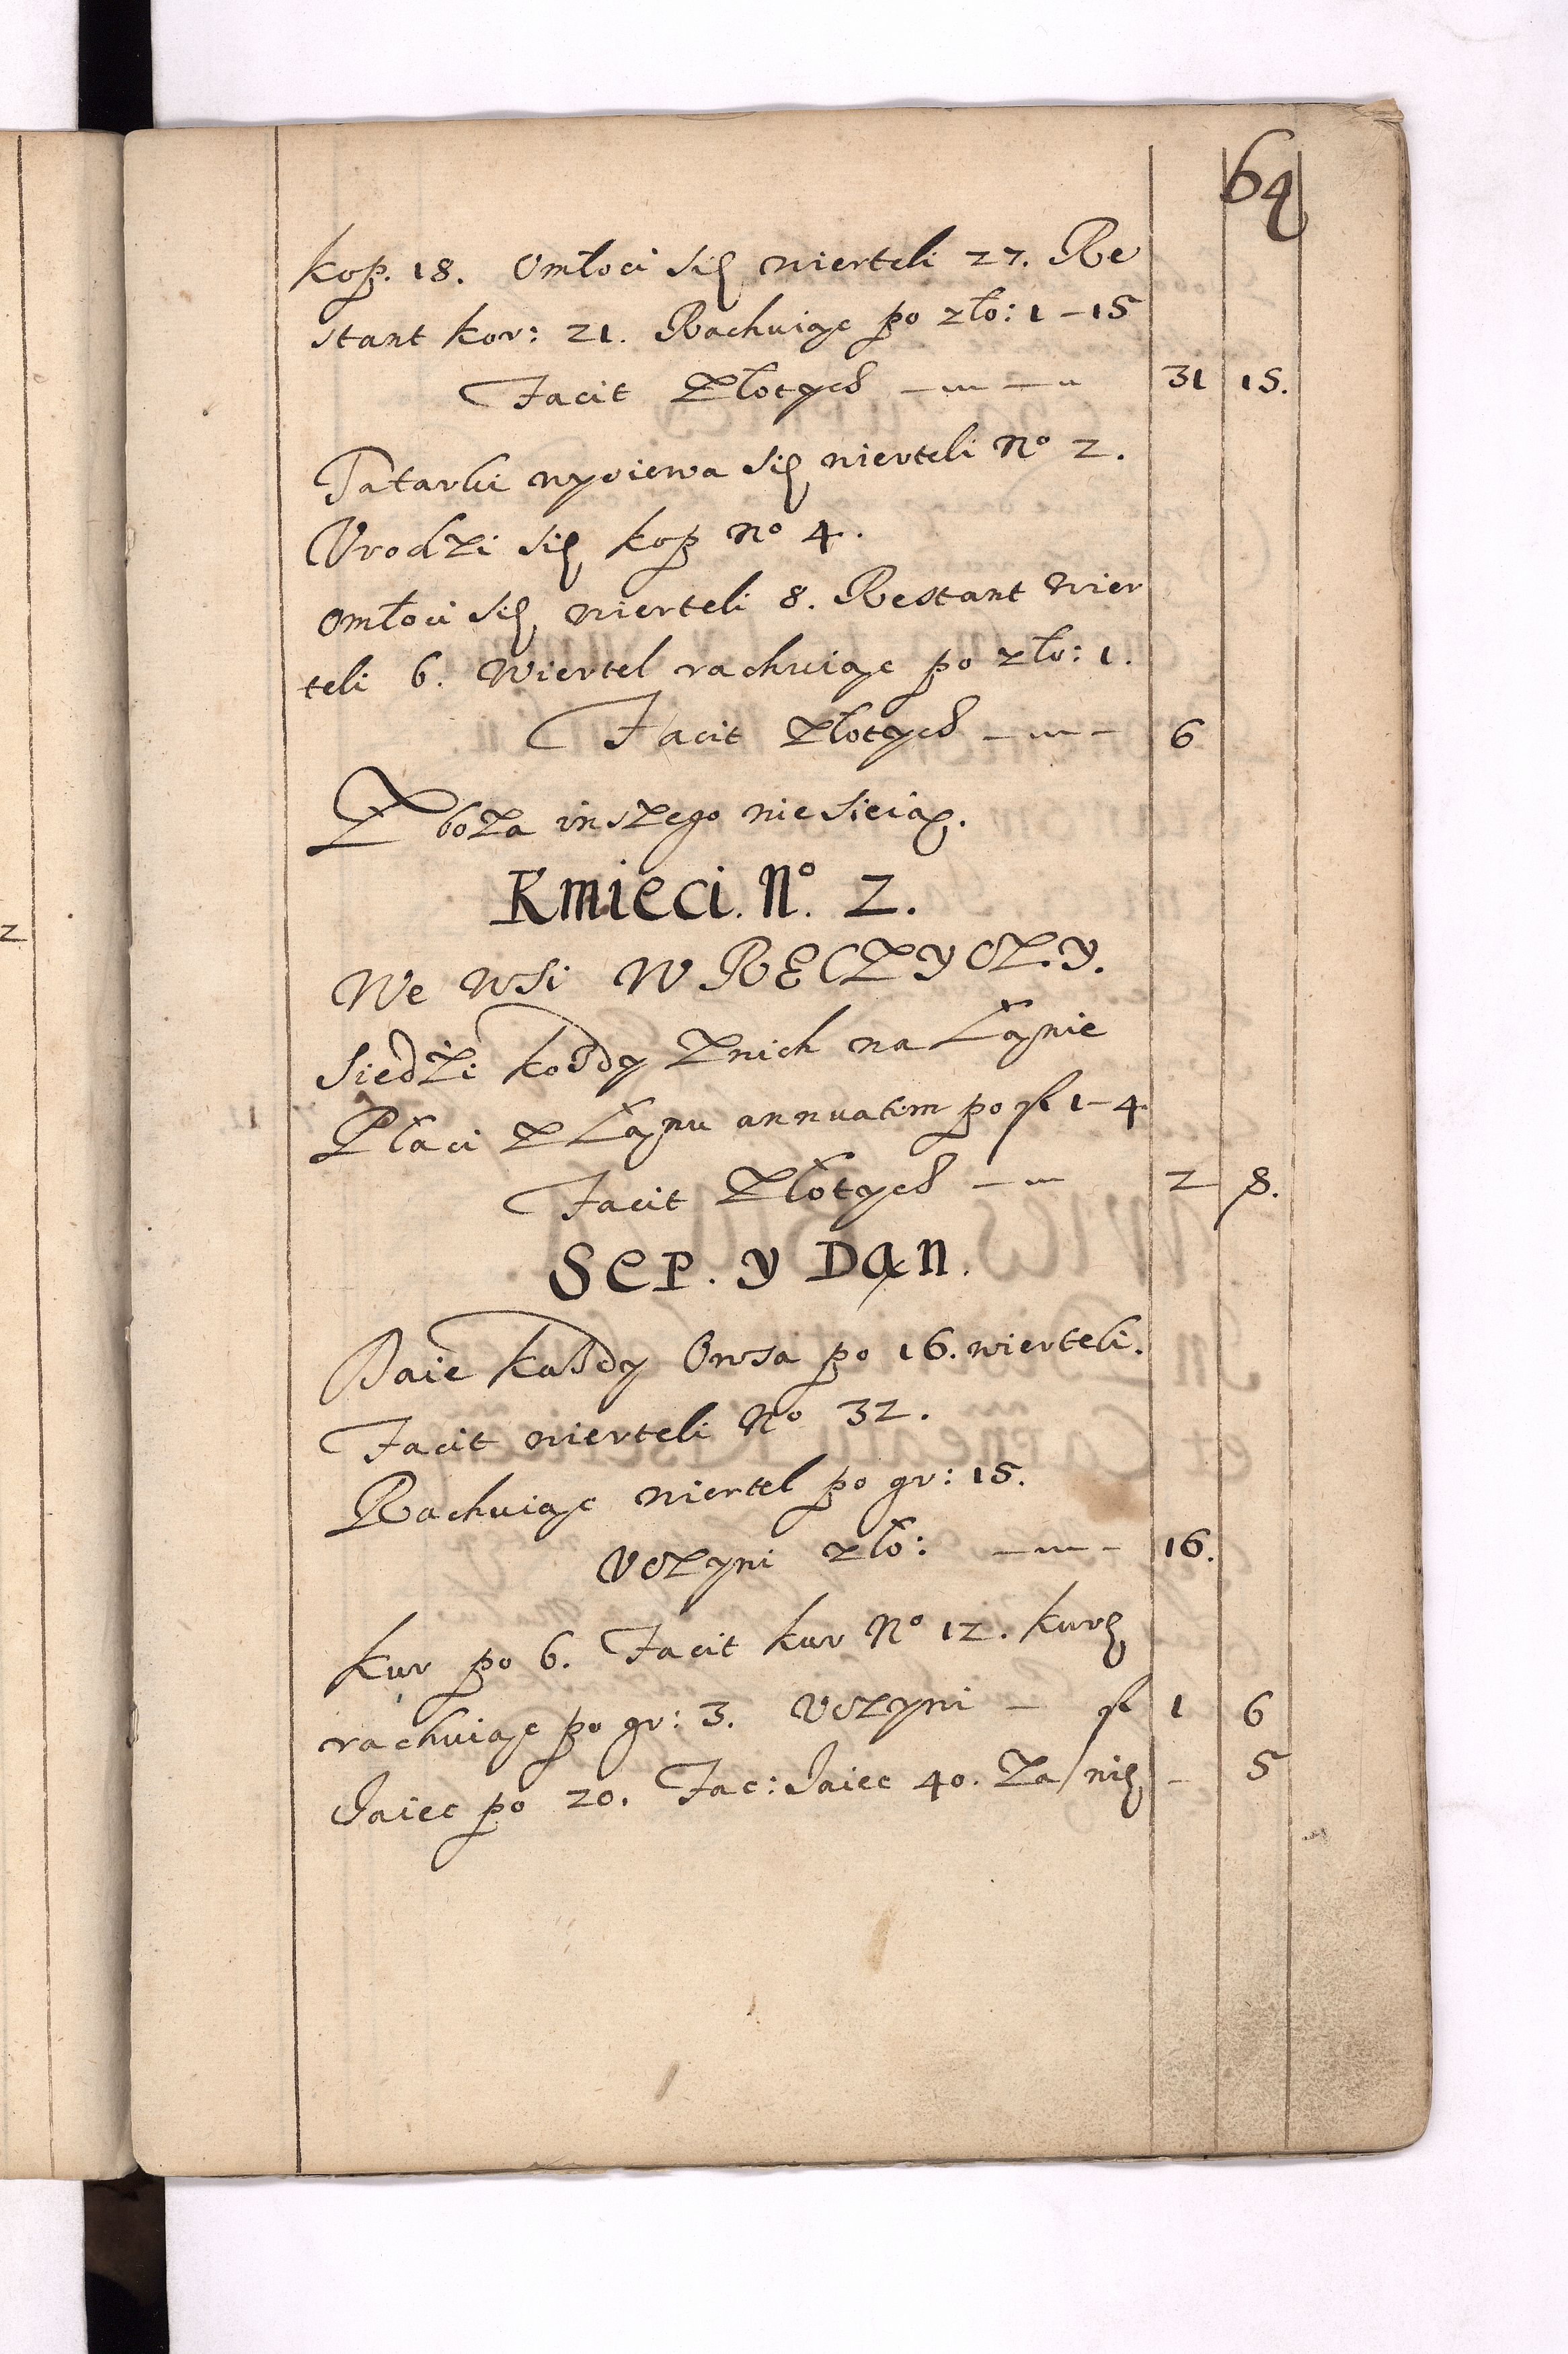 64
kop. 18. Omłoci się wierteli 27. Re
stant kor: 21. Rachuiąc po zło: 1 - 15
Facit Złotych 31 15.
Tatarki wysiewa się wierteli No 2.
Vrodzi się kop No 4.
Omłoci się wierteli 8. Restant wier
teli 6. Wiertel rachuiąc po zło: 1.
Facit Złotych 6
Zboża inszego nie sieią.
Kmieci. No. 2.
We wsi W RECZYCZY.
Siedzi każdy z nich na Łanie
Płaci z Łanu annuatim po fl 1 - 4
Facit Złotych 2 8.
Sep. y Dan.
Daie każdy Owsa po 16. wierteli.
Facit wierteli No 32.
Rachuiąc wiertel po gr: 15.
Vczyni zło: 16.
Kur po 6. Facit kur No 12. kurę
rachuiąc po gr: 3. Vczyni - fl 1 6
Jaiec po 20. Fac: Jaiec 40. Za nię - 5
2